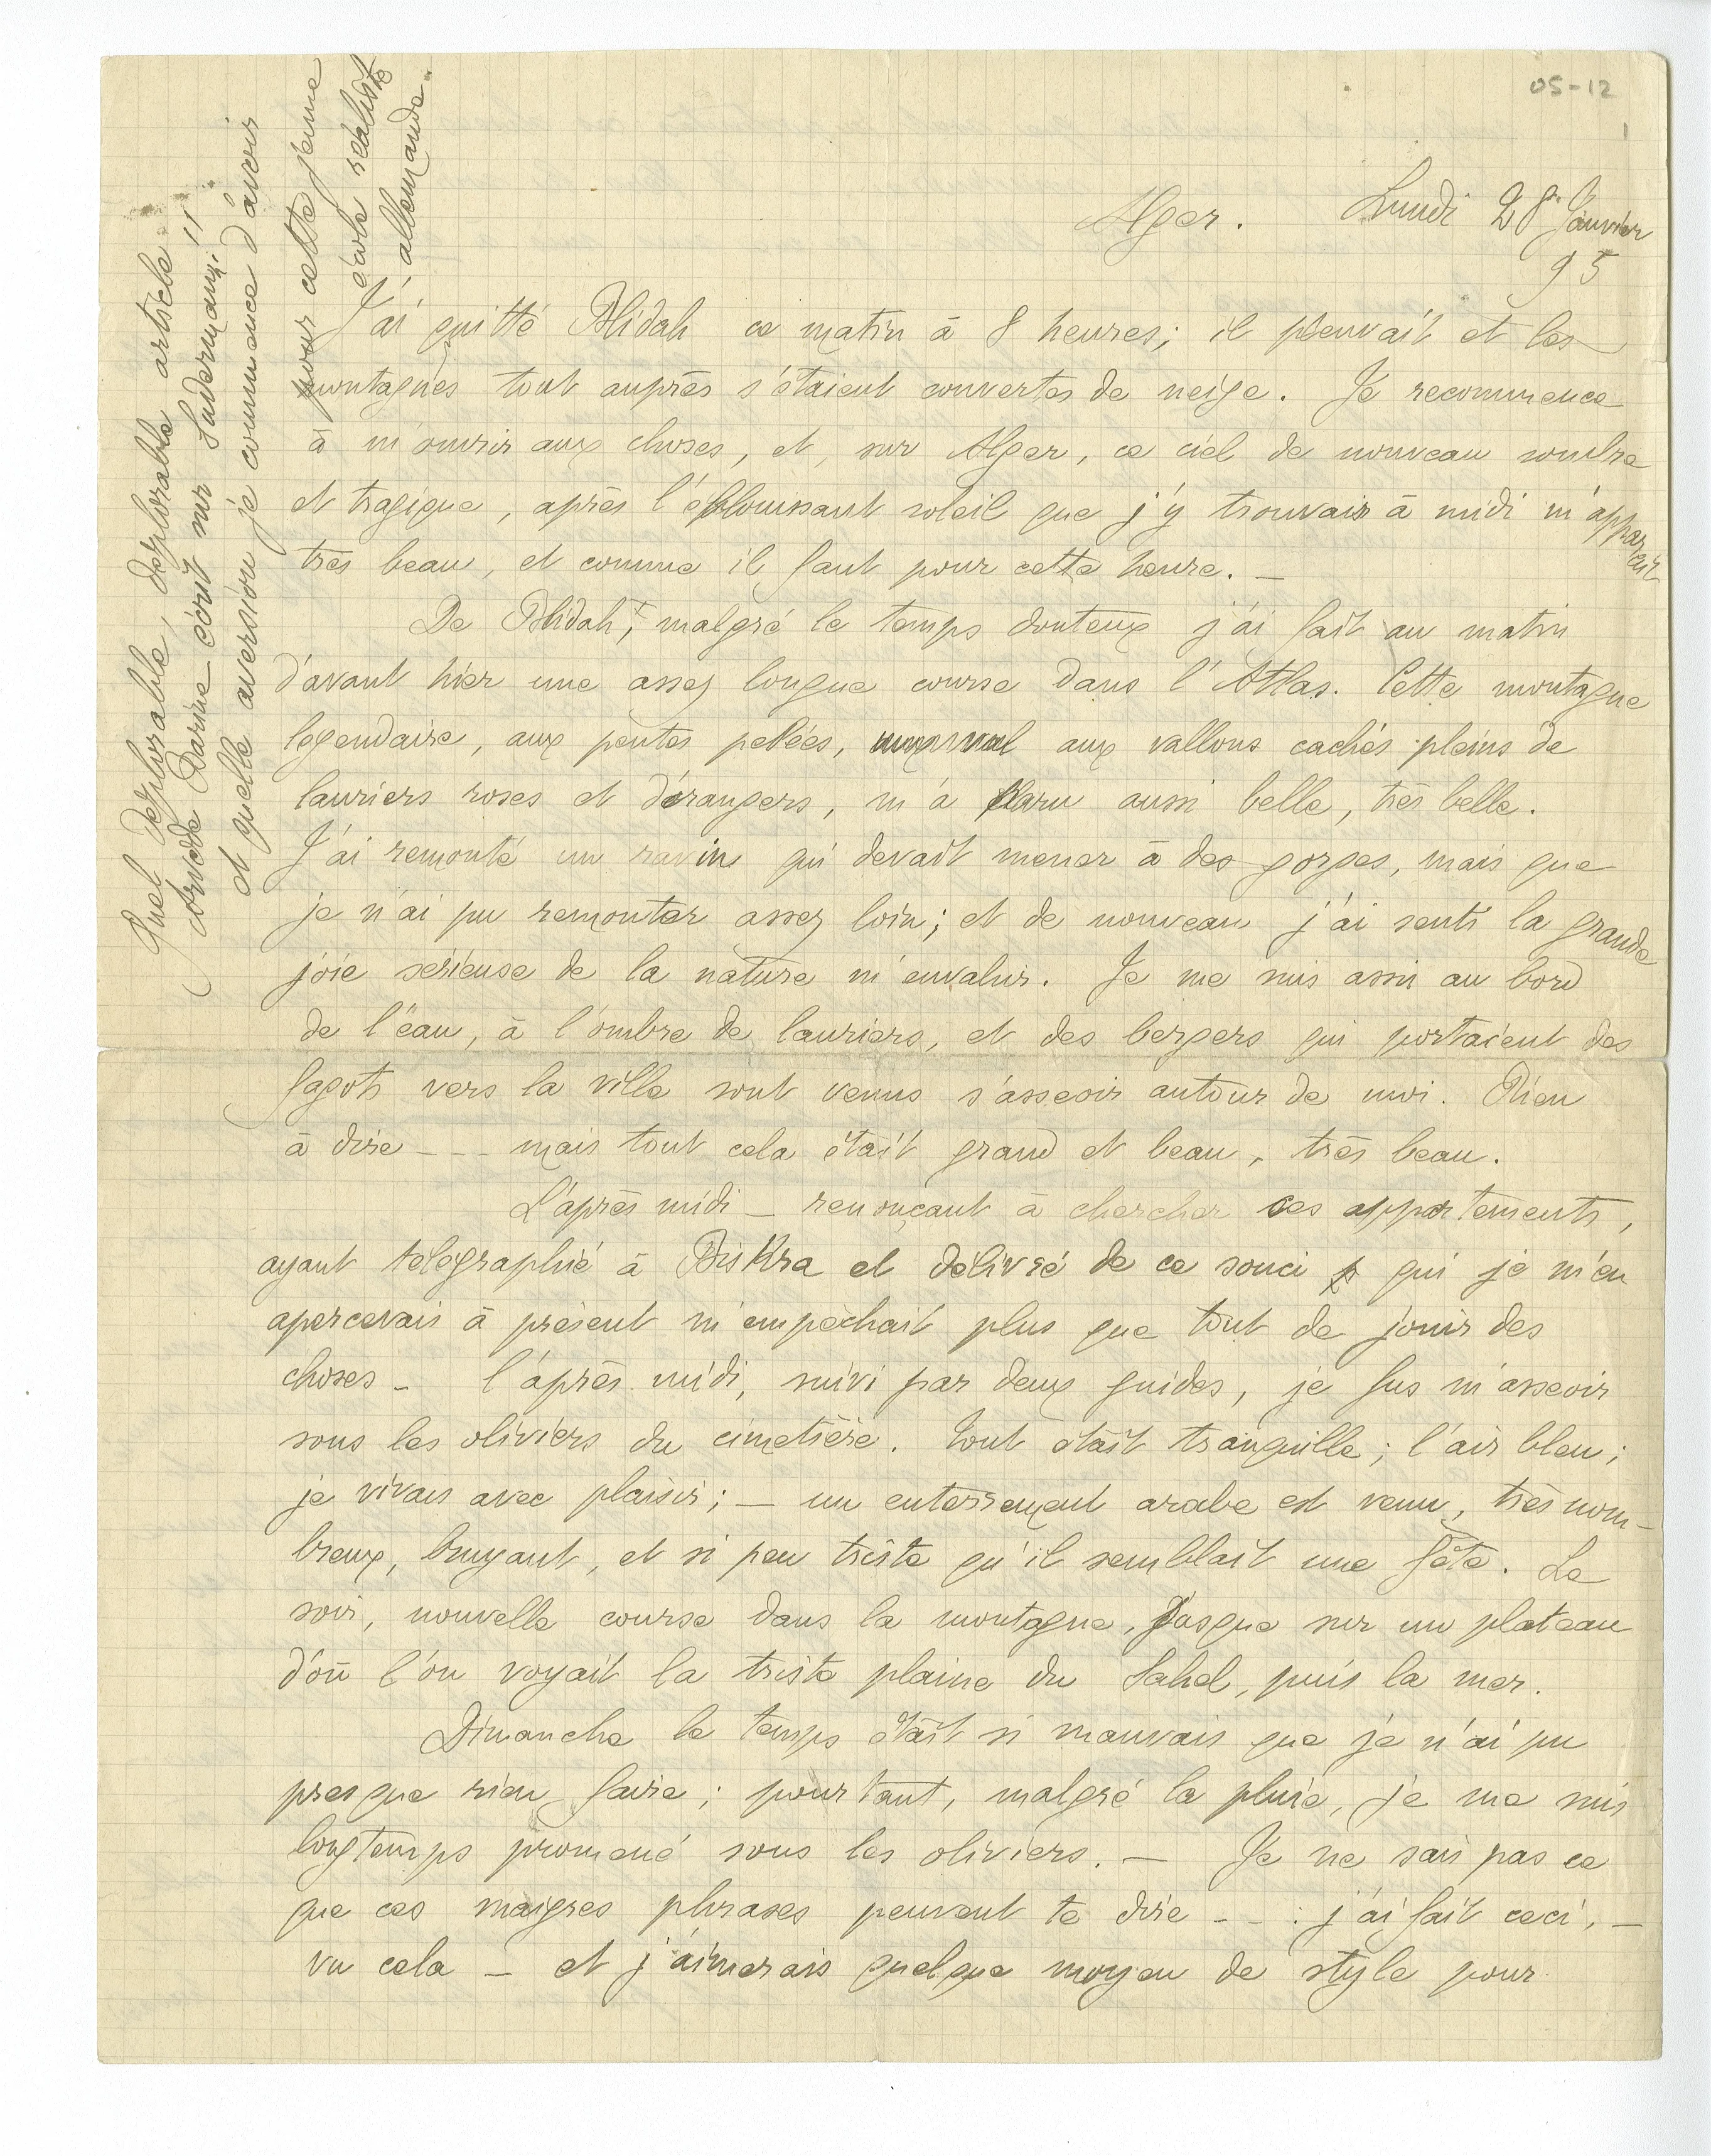 05-12
1
Alger. Lundi 28 Janvier
95
J'ai quitté Blidah ce matin à 8 heures; il pleuvait et les
montagnes tout auprès s'étaient couvertes de neige. Je recommence
à m'ouvrir aux choses, et, sur Alger, ce ciel de nouveau sombre
et tragique, après l'éblouissant soleil que j'y trouvais à midi m'apparait
très beau, et comme il faut pour cette heure. —
De Blidah, malgré le temps douteux j'ai fait au matin
d'avant hier une assez longue course dans l'Atlas. Cette montagne
legendaire, aux pentes pelées, aux vallons cachés pleins de
lauriers roses et d'orangers, m'a paru aussi belle, très belle.
J'ai remonté un ravin qui devait mener à des gorges, mais que
je n'ai pu remonter assez loin; et de nouveau j'ai senti la grande
joie serieuse de la nature m'envahir. Je me suis assis au bord
de l'eau, à l'ombre de lauriers, et des bergers qui portaient des
fagots vers la ville sont venus s'asseoir autour de moi. Rien
à dire - - - mais tout cela était grand et beau, très beau.
L'après midi — renonçant à chercher ces appartements,
ayant télégraphié à Biskra et délivré de ce souci qui je m'en
apercevais à présent m'empêchait plus que tout de jouir des
choses — l'après midi, suivi par deux guides, je fus m'asseoir
sous les oliviers du cimetière. Tout était tranquille; l'air bleu;
je vivais avec plaisir; — un enterrement arabe est venu, très nom-
breux, bruyant, et si peu triste qu'il semblait une fête. Le
soir, nouvelle course dans la montagne, jusque sur un plateau
d'où l'on voyait la triste plaine du Sahel, puis la mer.
Dimanche le temps était si mauvais que je n'ai pu
presque rien faire; pourtant, malgré la pluie, je me suis
longtemps promené sous les oliviers. — Je ne sais pas ce
que ces maigres phrases peuvent te dire - - : j'ai fait ceci, —
vu cela — et j'aimerais quelque moyen de style pour
Quel déplorable, déplorable article
Darine écrit sur Sudermann!!
et quelle aversion je commence d'avoir
pour cette jeune
école réaliste
allemande.